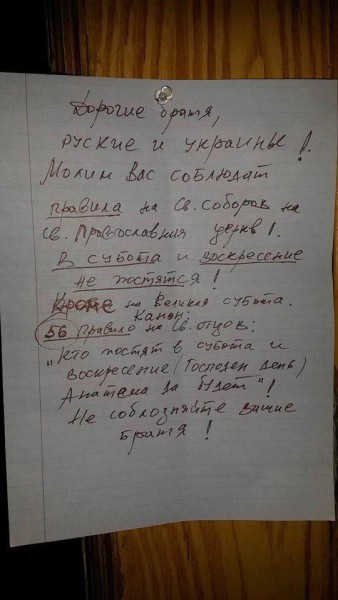 Дорогие братя,
руские и украинцы!
Молим Вас соблюдат
правила на Св. Соборов на
Св. Православния церкв!.
В субота и воскресение
не постятся!
Кроте на Великая субота.
Канон:
56 правило на Св. отцов:
"Кто постят в субота и
воскресение (Господен день)
Анатема да будет"!
Не соблозняйте ваше
братя!